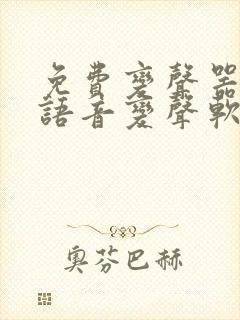 免費變聲器
語音變聲軟
奧芬巴赫